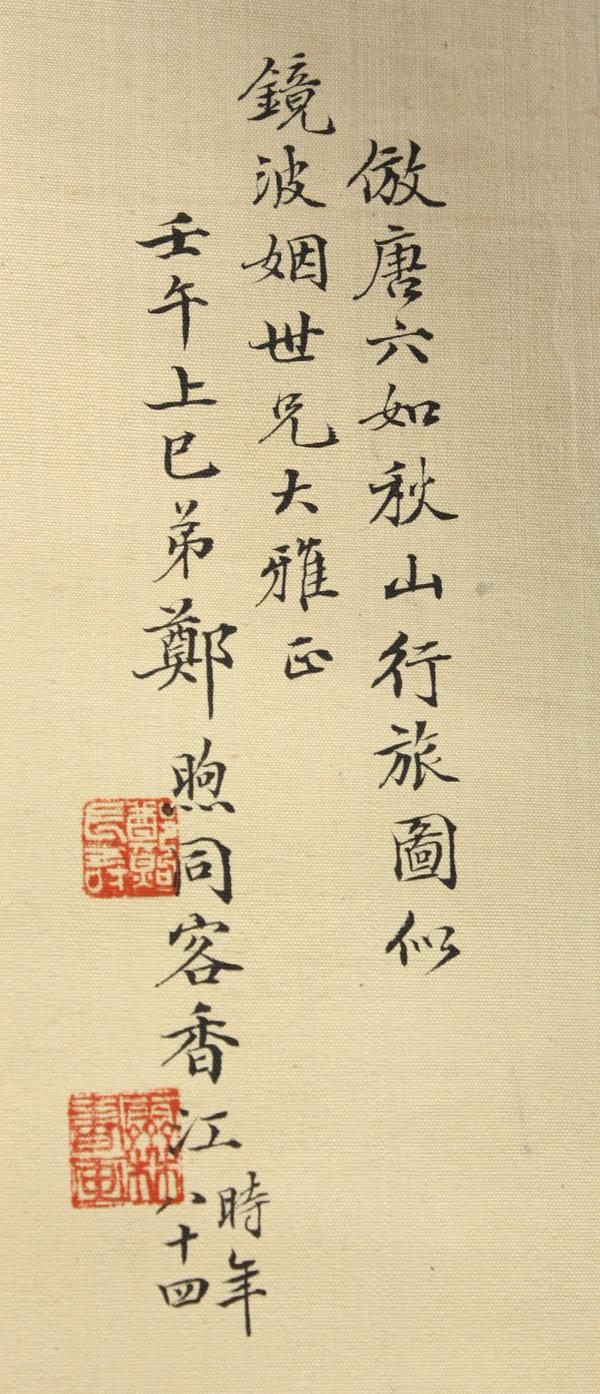 倣唐六如秋山行旅圖似
鏡波姻世兄大雅正
壬午上巳弟鄭煦同客香江
時年
八十四